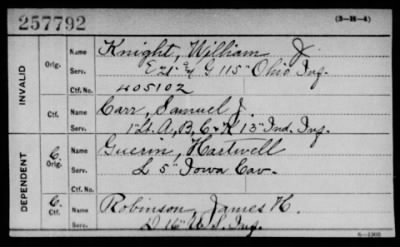 257792
(3-H-4)
INVALID
Orig.
Name
Knight, William J.
Serv.
E 21 & G 115" Ohio Inf.
Ctf. No.
405102
Ctf.
Name
Carr, Samuel J.
Serv.
1 Lt. A, B, C & K 13" Ind. Inf.
DEPENDENT
C.
Orig.
Name
Guerin, Hartwell
Serv.
L 5" Iowa Cav.
Ctf. No.
C.
Ctf.
Name
Robinson, James H.
Serv.
D 16" U.S. Inf.